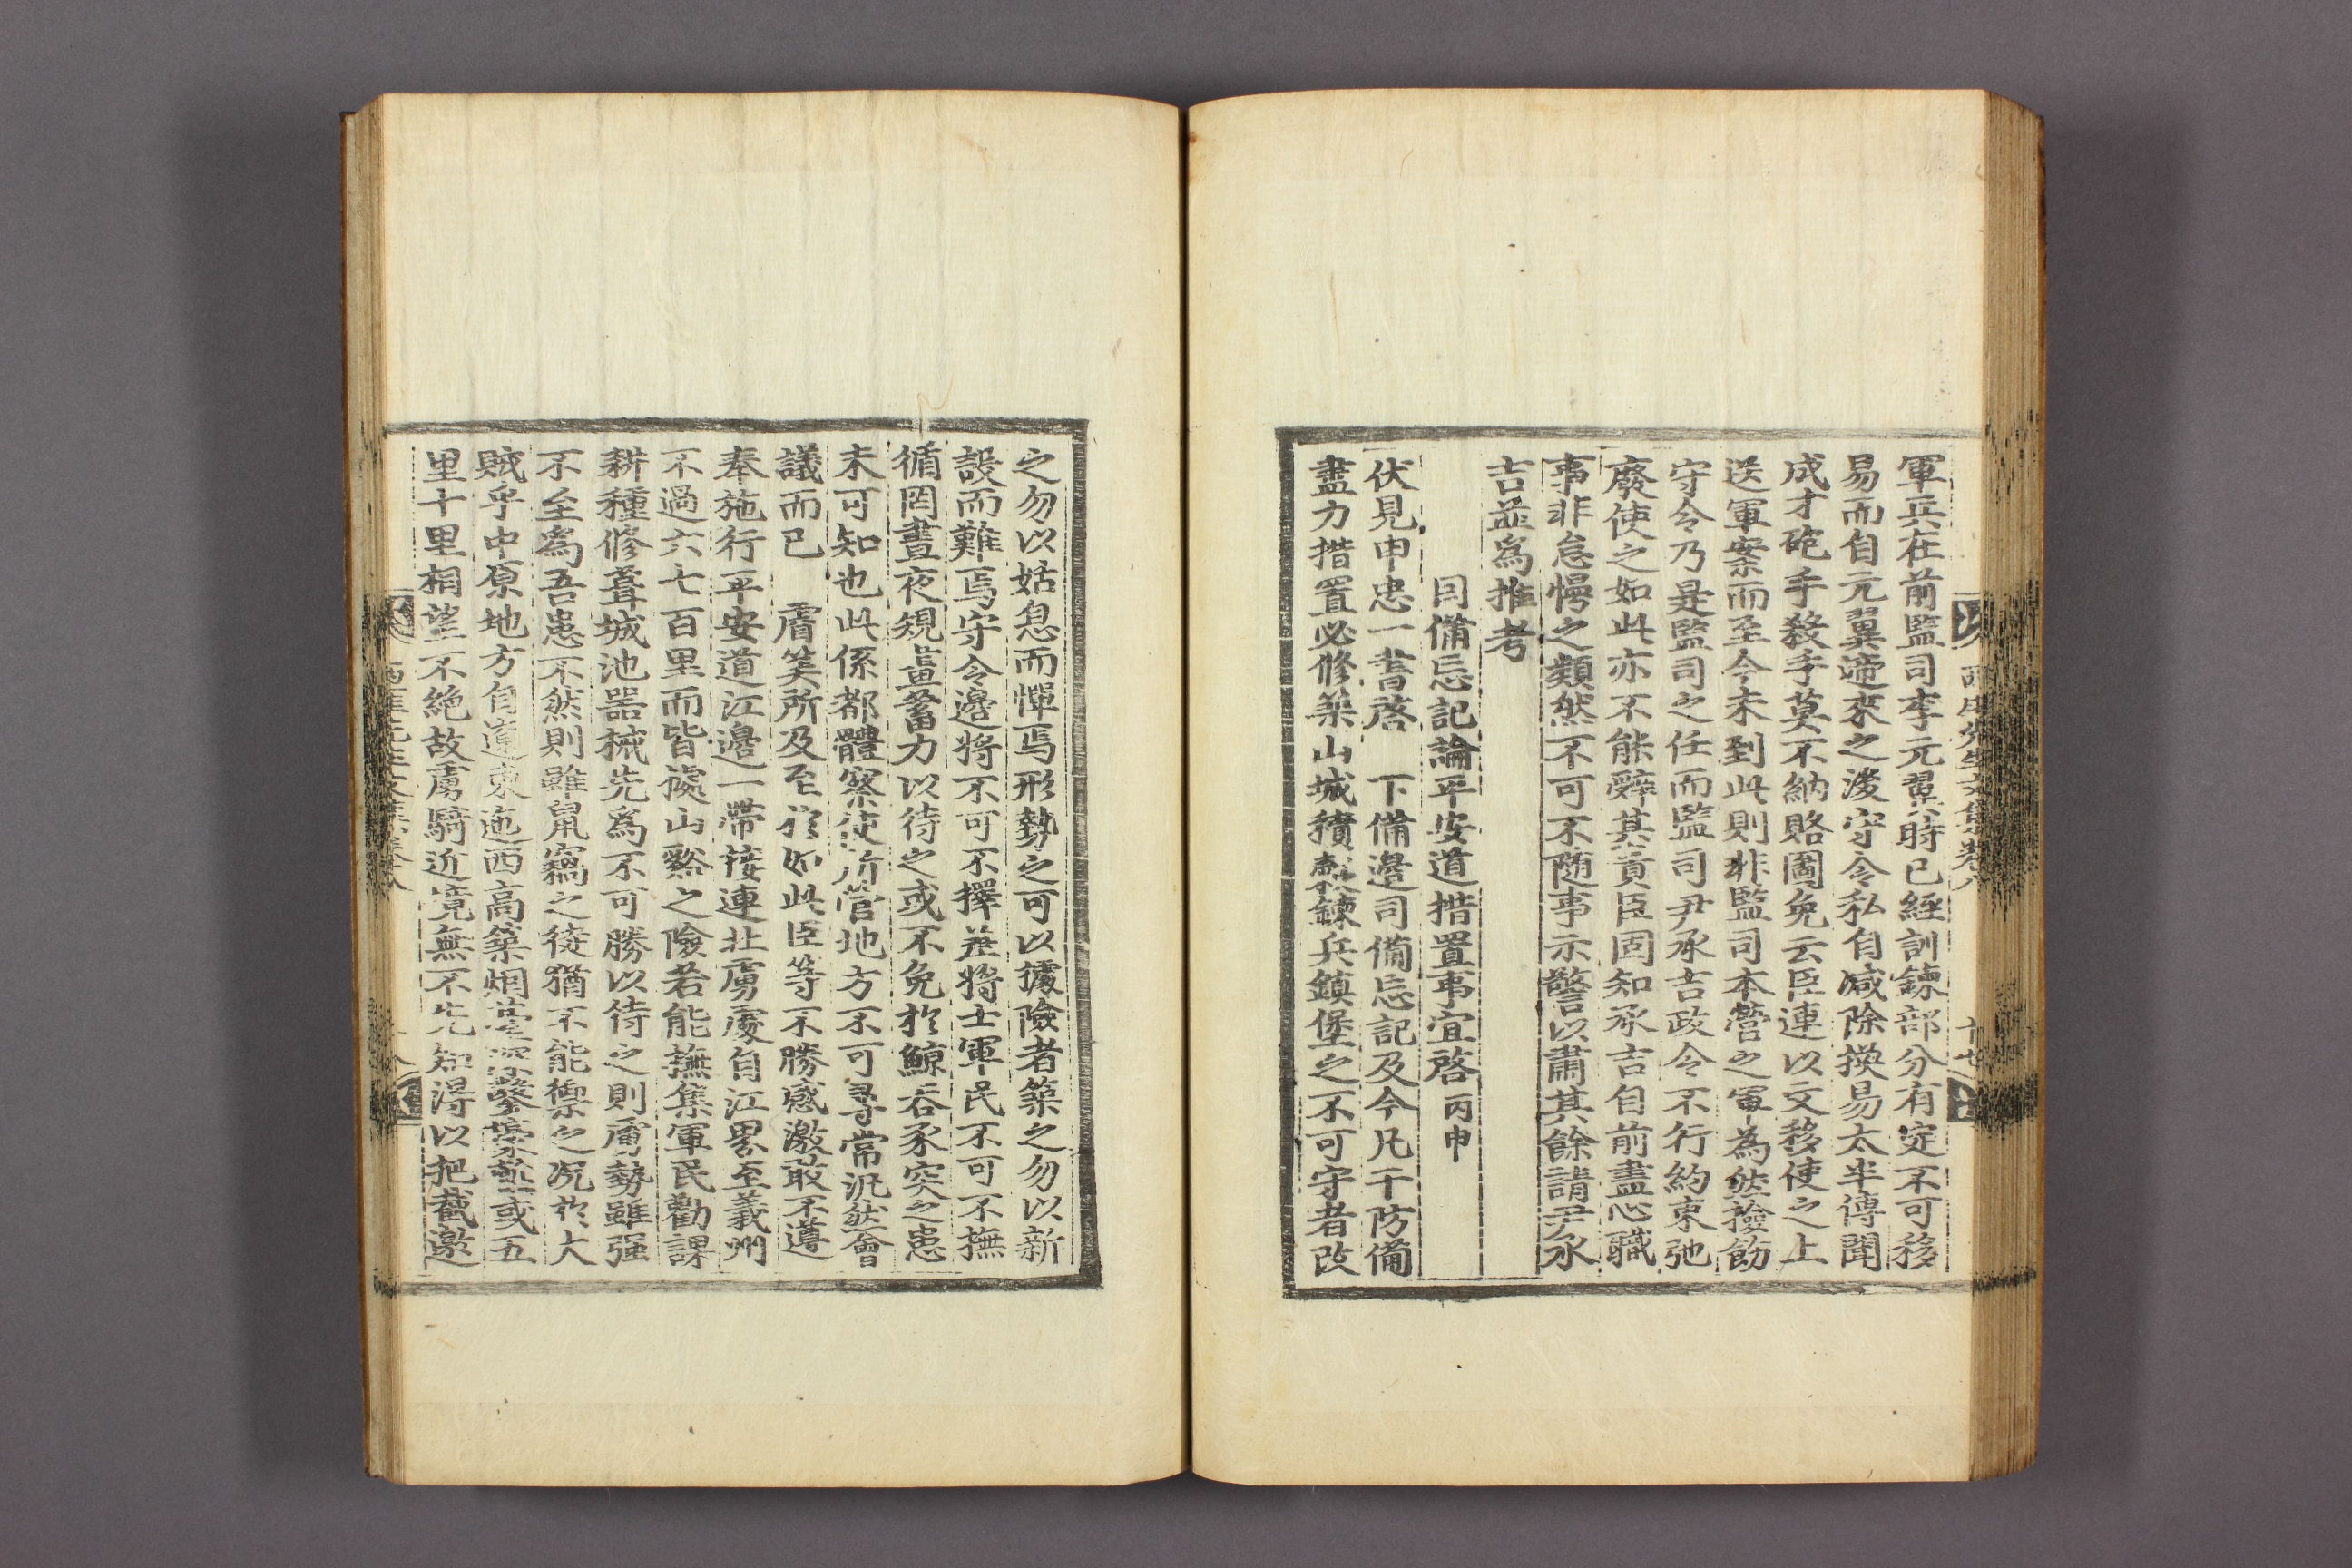 軍兵在前監司李元翼時已經訓鍊部分有定不可移
易而自元翼遞來之後守令私自減除換易太半傳聞
成才砲手殺手莫不納賂圖免云臣連以文移使之上
送軍案而至今未到此則非監司本營之軍為然撿飭
守令乃是監司之任而監司尹承吉政令不行約束弛
廢使之如此亦不能辭其責臣固知承吉自前盡心職
事非怠慢之類然不可不随事示警以肅其餘請尹承
吉並爲推考
因備忘記論平安道措置事宜啓 丙申
伏見申忠一書啓 下備邊司備忘記及今凡干防備
盡力措置必修築山城積穀鍊兵鎮堡之不可守者改
西厓先生文集卷八
之勿以姑息而憚焉形勢之可以據險者築之勿以新
設而難焉守令邊將不可不擇差將士軍民不可不撫
循罔晝夜規畫蓄力以待之或不免於鯨呑豕突之患
未可知也此係都體察使所管地方不可尋常泛然會
議而已 睿筭所及至於如此臣等不勝感激敢不遵
奉施行平安道江邊一帶接連北虜處自江界至義州
不過六七百里而皆據山谿之險若能撫集軍民勸課
耕種修葺城池器械先爲不可勝以待之則虜勢雖强
不至爲吾患不然則雖鼠竊之徒猶不能禦之况於大
賊乎中原地方自遼東迤西高築烟臺深鑿壕塹或五
里十里相望不絶故虜騎近境無不先知得以把截邀
西厓先生文集卷八